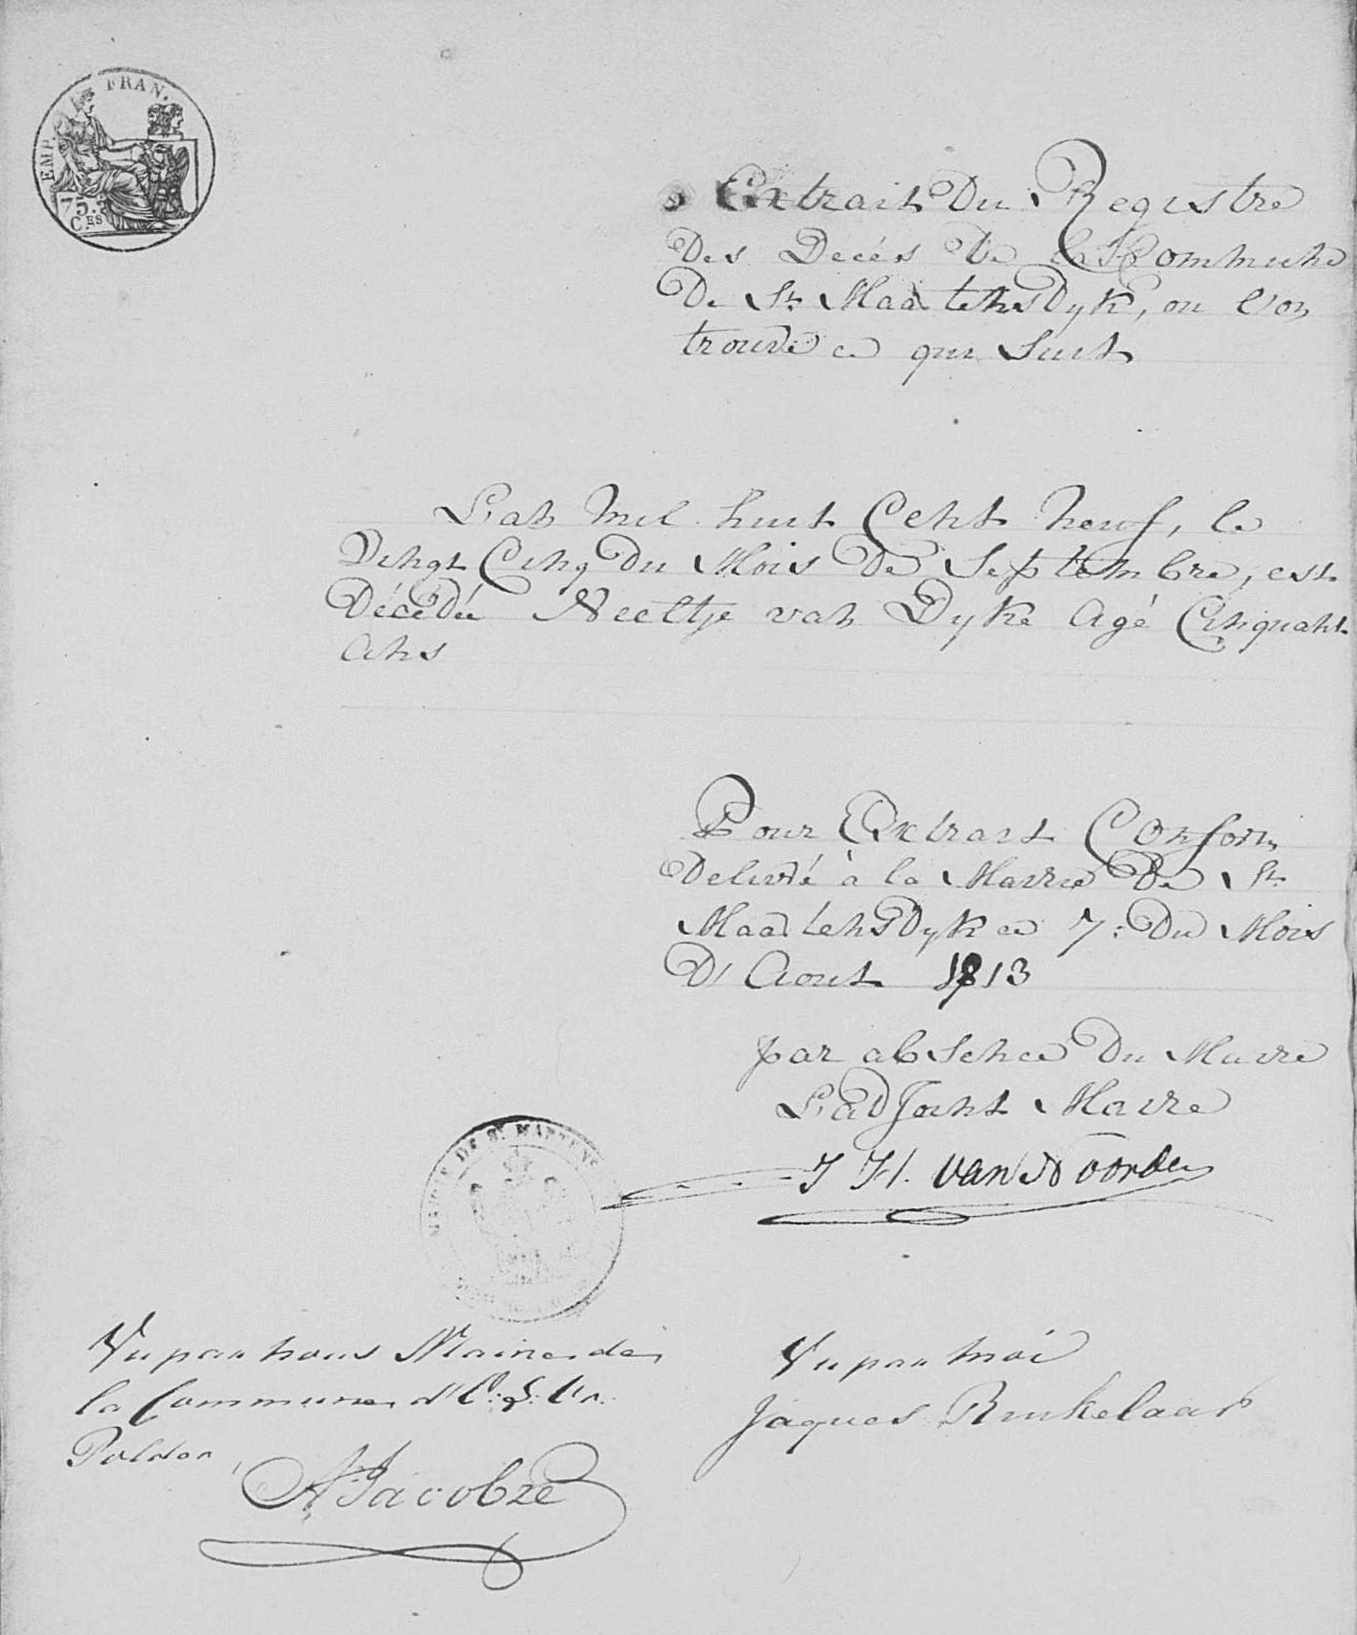 EMP. FRAN.
75. Ces
Extrait Du Registre
Des Decés De la Commune
De St. Maartensdyk, ou l'on
trouve ce qui Suit
L'an mil huit Cent neuf, le
Vingt Cinq Du Mois De Septembre, est
Décédé Neeltje van Dyke Agé Cinquant
Ans
Pour Extrait Conform
Delivré à la Mairie De St.
Maartensdyk ce 7: Du Mois
D'Aout 1813
par absence Du Maire
L'adjoint Maire
J H. van Noorden
MAIRIE DE St. MARTENS
Vu par nous Maire de
la Commune d'
Polder,
A Jacobze
Vu par moi
Jaques Runkelaar